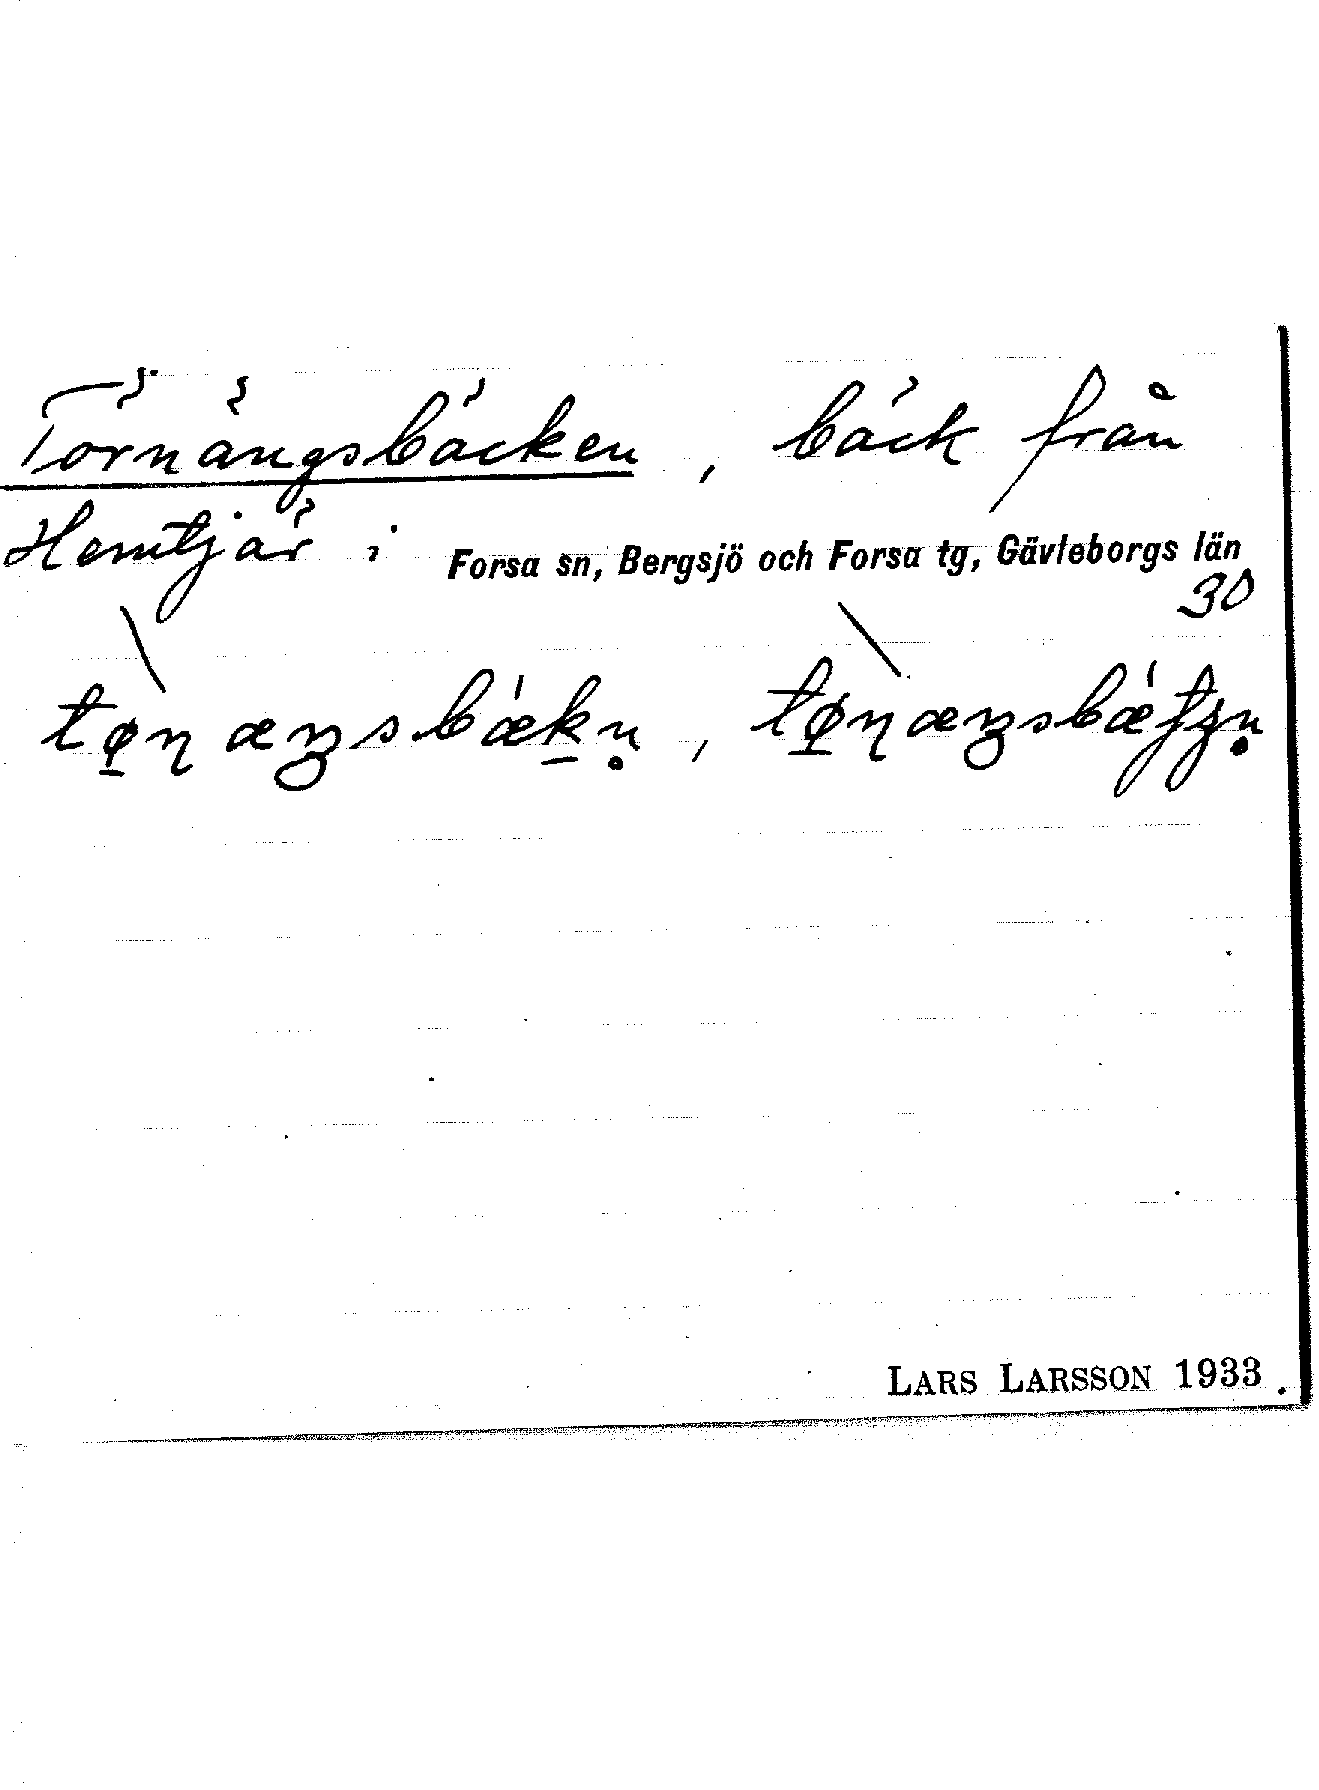 Törnängsbäcken, bäck från
Hemtjär i Forsa sn, Bergsjö och Forsa tg, Gävleborgs län
30
LARS LARSSON 1933